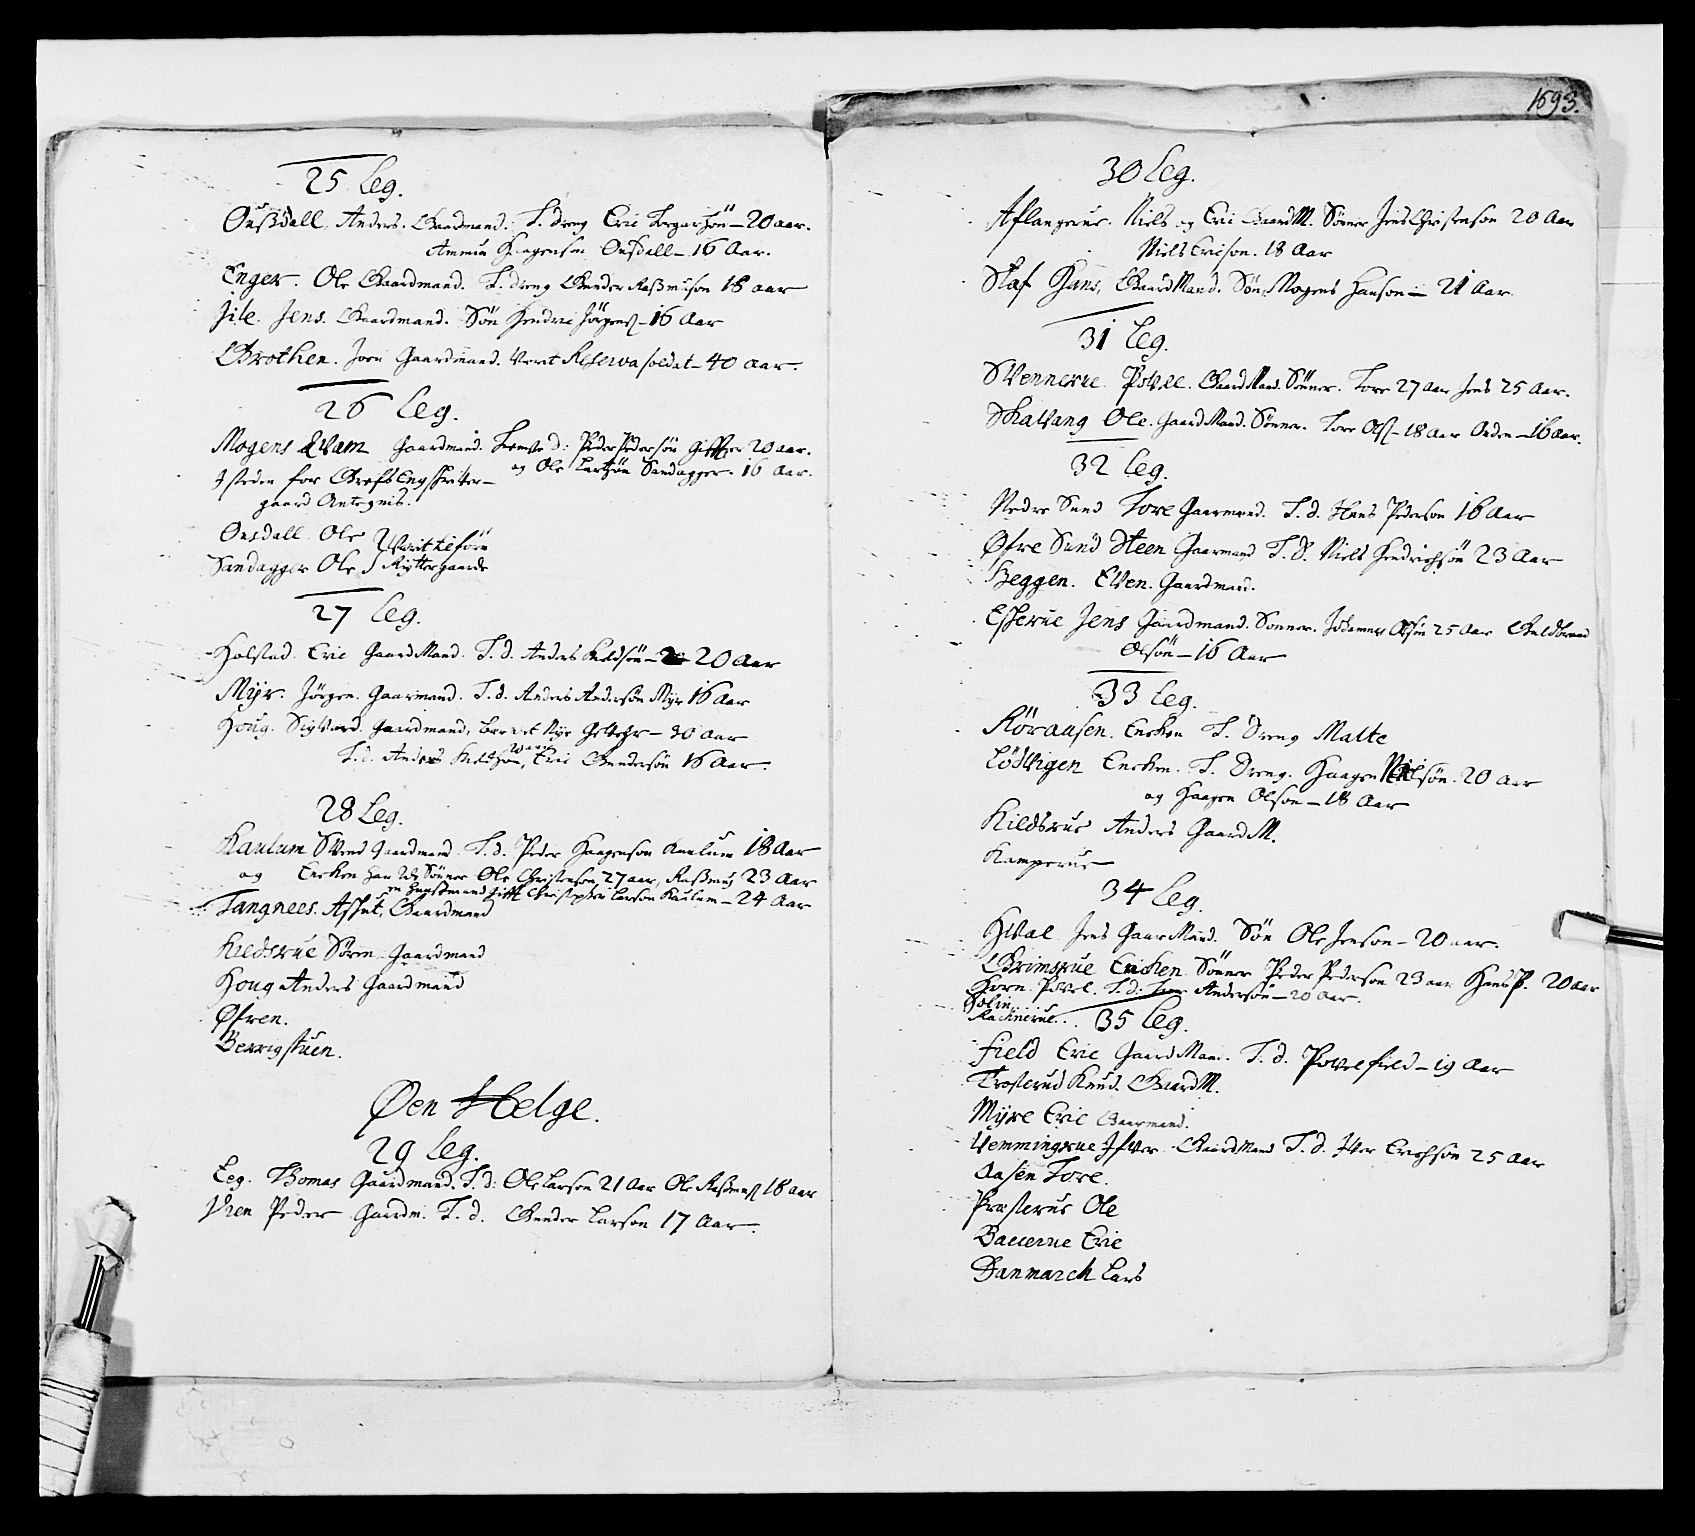 25 Leg.
Oußdall, Anders. Gaardmand. T. dreng Eric Torgerßön – 20 aar.
Ammun Haagensøn Ousdall – 16 Aar.
Enger. Ole Gaardmand. T. dreng Gunder Raßmuson 18 aar
Jile. Jens. Gaardmand. Søn Hendric Jörgens – 16 Aar
Grothen. Joen Gaardmand. Veret Reserva soldat – 40 aar.
26 Leg.
Mogens Qvam Gaardmand. Tieneste d: Peder Pedersøn Gifter 20 aar.
og Ole Lartzön Sandagger. 16 Aar.
I steden for Grefs Engs Rÿtter-
gaard Antegnis.
Ousdall Ole
Sandagger Ole
Verit tilforn Rÿttergaarde
27 Leg.
Holstad Eric Gaard Mand. T. d. Anders Keldsøn – 20 Aar
Mÿr. Jörgen. Gaarmand. T. d. Anders Andersøn Mÿr 16 Aar
Houg. Sigvard. Gaardmand, baaret Nÿe Gevehr – 30 aar
T. d. Anders Keldsøn, Eric Gundersøn 16 Aar.
28 Leg.
Kaulum Svend Gaardmand. T. d. Peder Haagenson Kaulum 18 Aar
og Encken har Sönner Ole Christenson 27 aar, Raßmus 23 Aar
en Hußmand gifft Christopher Larson Kaulum – 24 Aar
Tangnees. Aslut, Gaardmand
Kildsrue Sören Gaardmand
Houg Anders Gaardmand
Øfren.
Berrigstuen.
Øen Helge.
29 Leg.
Leg. Thomas Gaardmand. T. d: Ole Larson 21 Aar Ole Raßmuß 18 aar
Vien Peder Gaardm. T. d. Gunder Larson 17 Aar.
1693.
30 Leg.
Aslangerue. Niels og Eric Gaard M. Sönner Jens Christenson 20 Aar
Niels Ericson. 18 Aar
Staf Hans, Gaard Mand. Søn, Mogens Hanson – 21 Aar
31 Leg.
Svennerue Povel. Gaard Mand. Sönner. Tore 27 Aar Jens 25 Aar.
Skatvang Ole. Gaard Mand. Sönner. Tore Olß – 18 Aar Anden – 16 aar.
32 Leg.
Nedre Sund Tore Gaarmand. T. d. Hans Pederson 16 Aar
Øfre Sund Steen Gaarmand T. d. Niels Hendrichsøn 23 Aar
Beggen. Even. Gaardmand.
Esserue Jens Gaardmand. Sonner. Johannes Olsøn 25 Aar Guldbrand
Olsön – 16 Aar
33 Leg.
Röraasen. Encken T. Dreng Matte
Lödvigen Encken. T. Dreng. Haagen Nielsön. 20 Aar
og Haagen Olson – 18 Aar
Kildsrue Anders Gaard M.
Kamperue –
34 Leg.
Hval Jens Gaar Mand. Søn Ole Jenson – 20 aar.
Grimsrue Encken Sönner Peder Pederson 23 aar Hans P. 20 aar
Horn Povel. T. d: Andersøn – 20 aar.
Holm
Racknerue..
35 Leg.
Field Eric Gaard Man. T. d. Povel field – 19 Aar
Trosterud Knud. Gaard M.
Mÿre Eric Gaarmand.
Hemmingsrue Ifver Gaard Mand T. d. Iver Erichsøn 25 aar
Aasen Tore.
Præsterue Ole
Baccerue Eric
Danmarck Lars